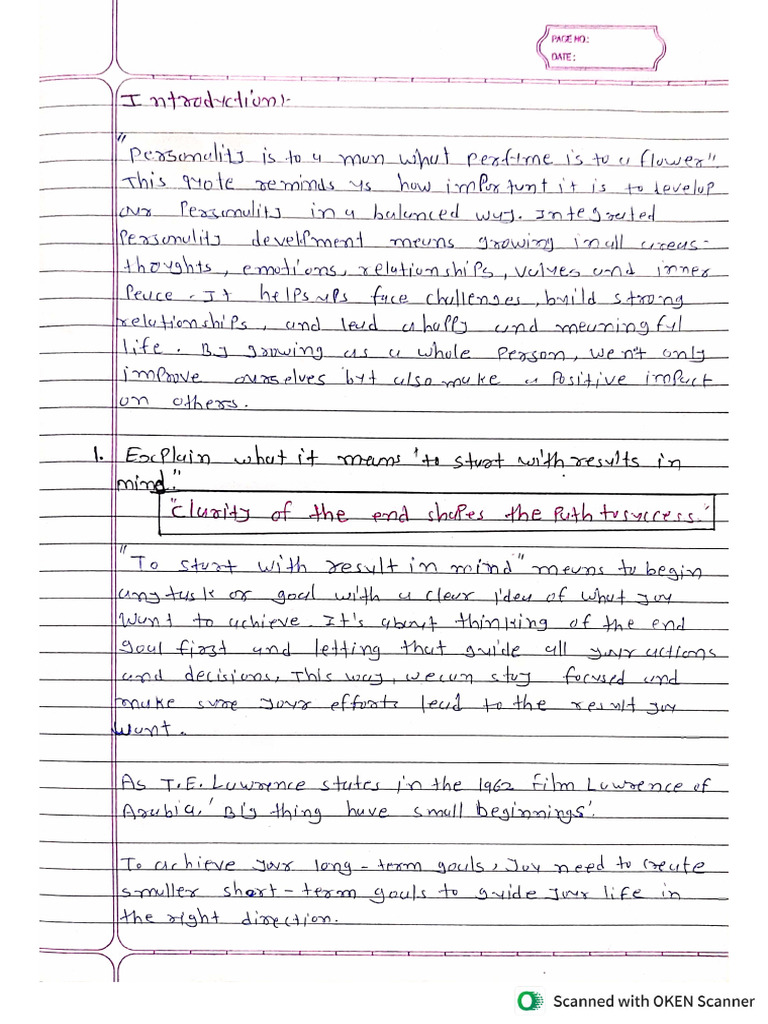 PAGE NO.:
DATE:
Introduction:-
"Personality is to a man what perfume is to a flower"
This quote reminds us how important it is to develop
our Personality in a balanced way. Integrated
Personality develpment means growing in all areas-
thoughts, emotions, relationships, values and inner
Peace. It helps ups face challenges, build strong
relationships, and lead a happy and meaningful
life. By growing as a whole person, we n't only
improve ourselves but also make a Positive impact
on others.
1. Explain what it means 'to start with results in
mind."
"Clarity of the end shapes the Path to success."
"To start with result in mind" means to begin
any task or goal with a clear idea of what you
want to achieve. It's about thinking of the end
goal first and letting that guide all your actions
and decisions, This way, we can stay focused and
make sure your efforts lead to the result you
want.
As T.E. Lawrence states in the 1962 film Lawrence of
Arabia, 'Big thing have small beginnings'.
To achieve your long-term goals, you need to create
smaller short-term goals to guide your life in
the right direction.
Scanned with OKEN Scanner